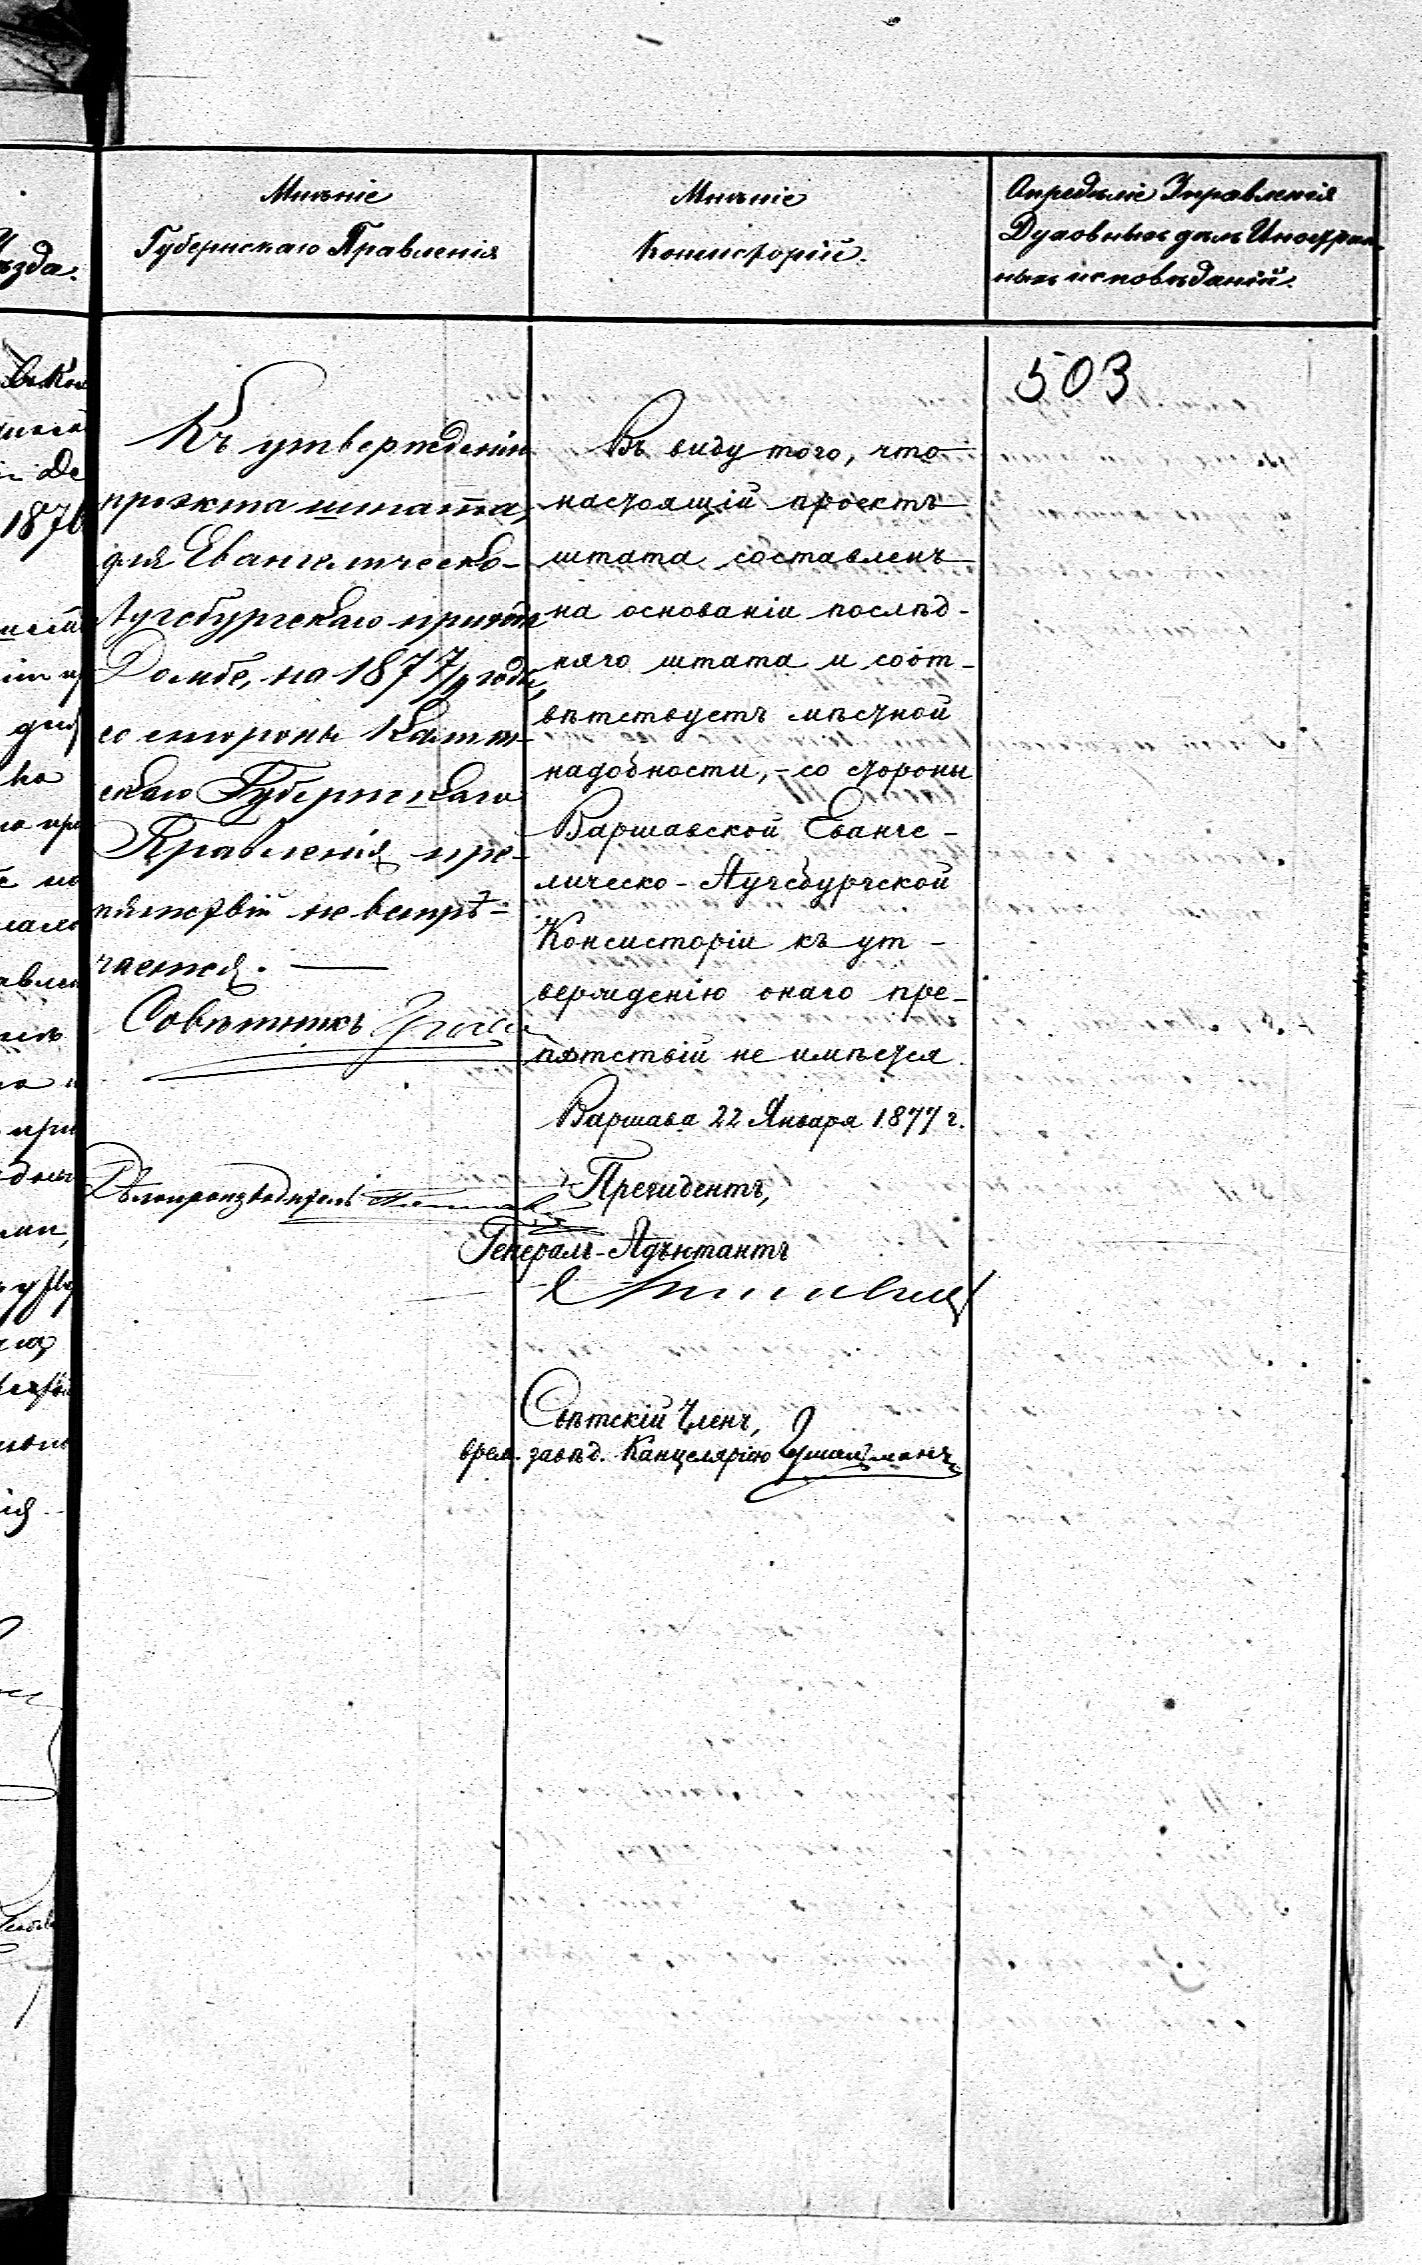 Мнѣніе
Губернскаго Правленія
Мнѣніе
Консисторій.
Опредѣліе Управленія
Духовныхъ дѣлъ Иностран-
ныхъ исповѣданій.
ѣзда.
1876
503
Къ утвержденію
проэкта штата,
для Евангелическо-
Аугсбургскаго прихода
Домбе, на 1877/9 годы,
со стороны Калиш-
скаго Губернскаго
Правленія, пре-
пятствій не встрѣ-
чается. —
Совѣтникъ
Дѣлопроизводитель
Въ виду того, что
настоящій проектъ
штата составленъ
на основаніи послѣд-
няго штата и соот-
вѣтствуетъ мѣстной
надобности, - со стороны
Варшавской Еванге-
лическо-Аугсбургской
Консисторіи къ ут-
вержденію онаго пре-
пятствій не имѣется.
Варшава 22 Января 1877 г.
Президентъ,
Генералъ-Адъютантъ
Свѣтскій Членъ,
врем. завѣд. Канцеляріею